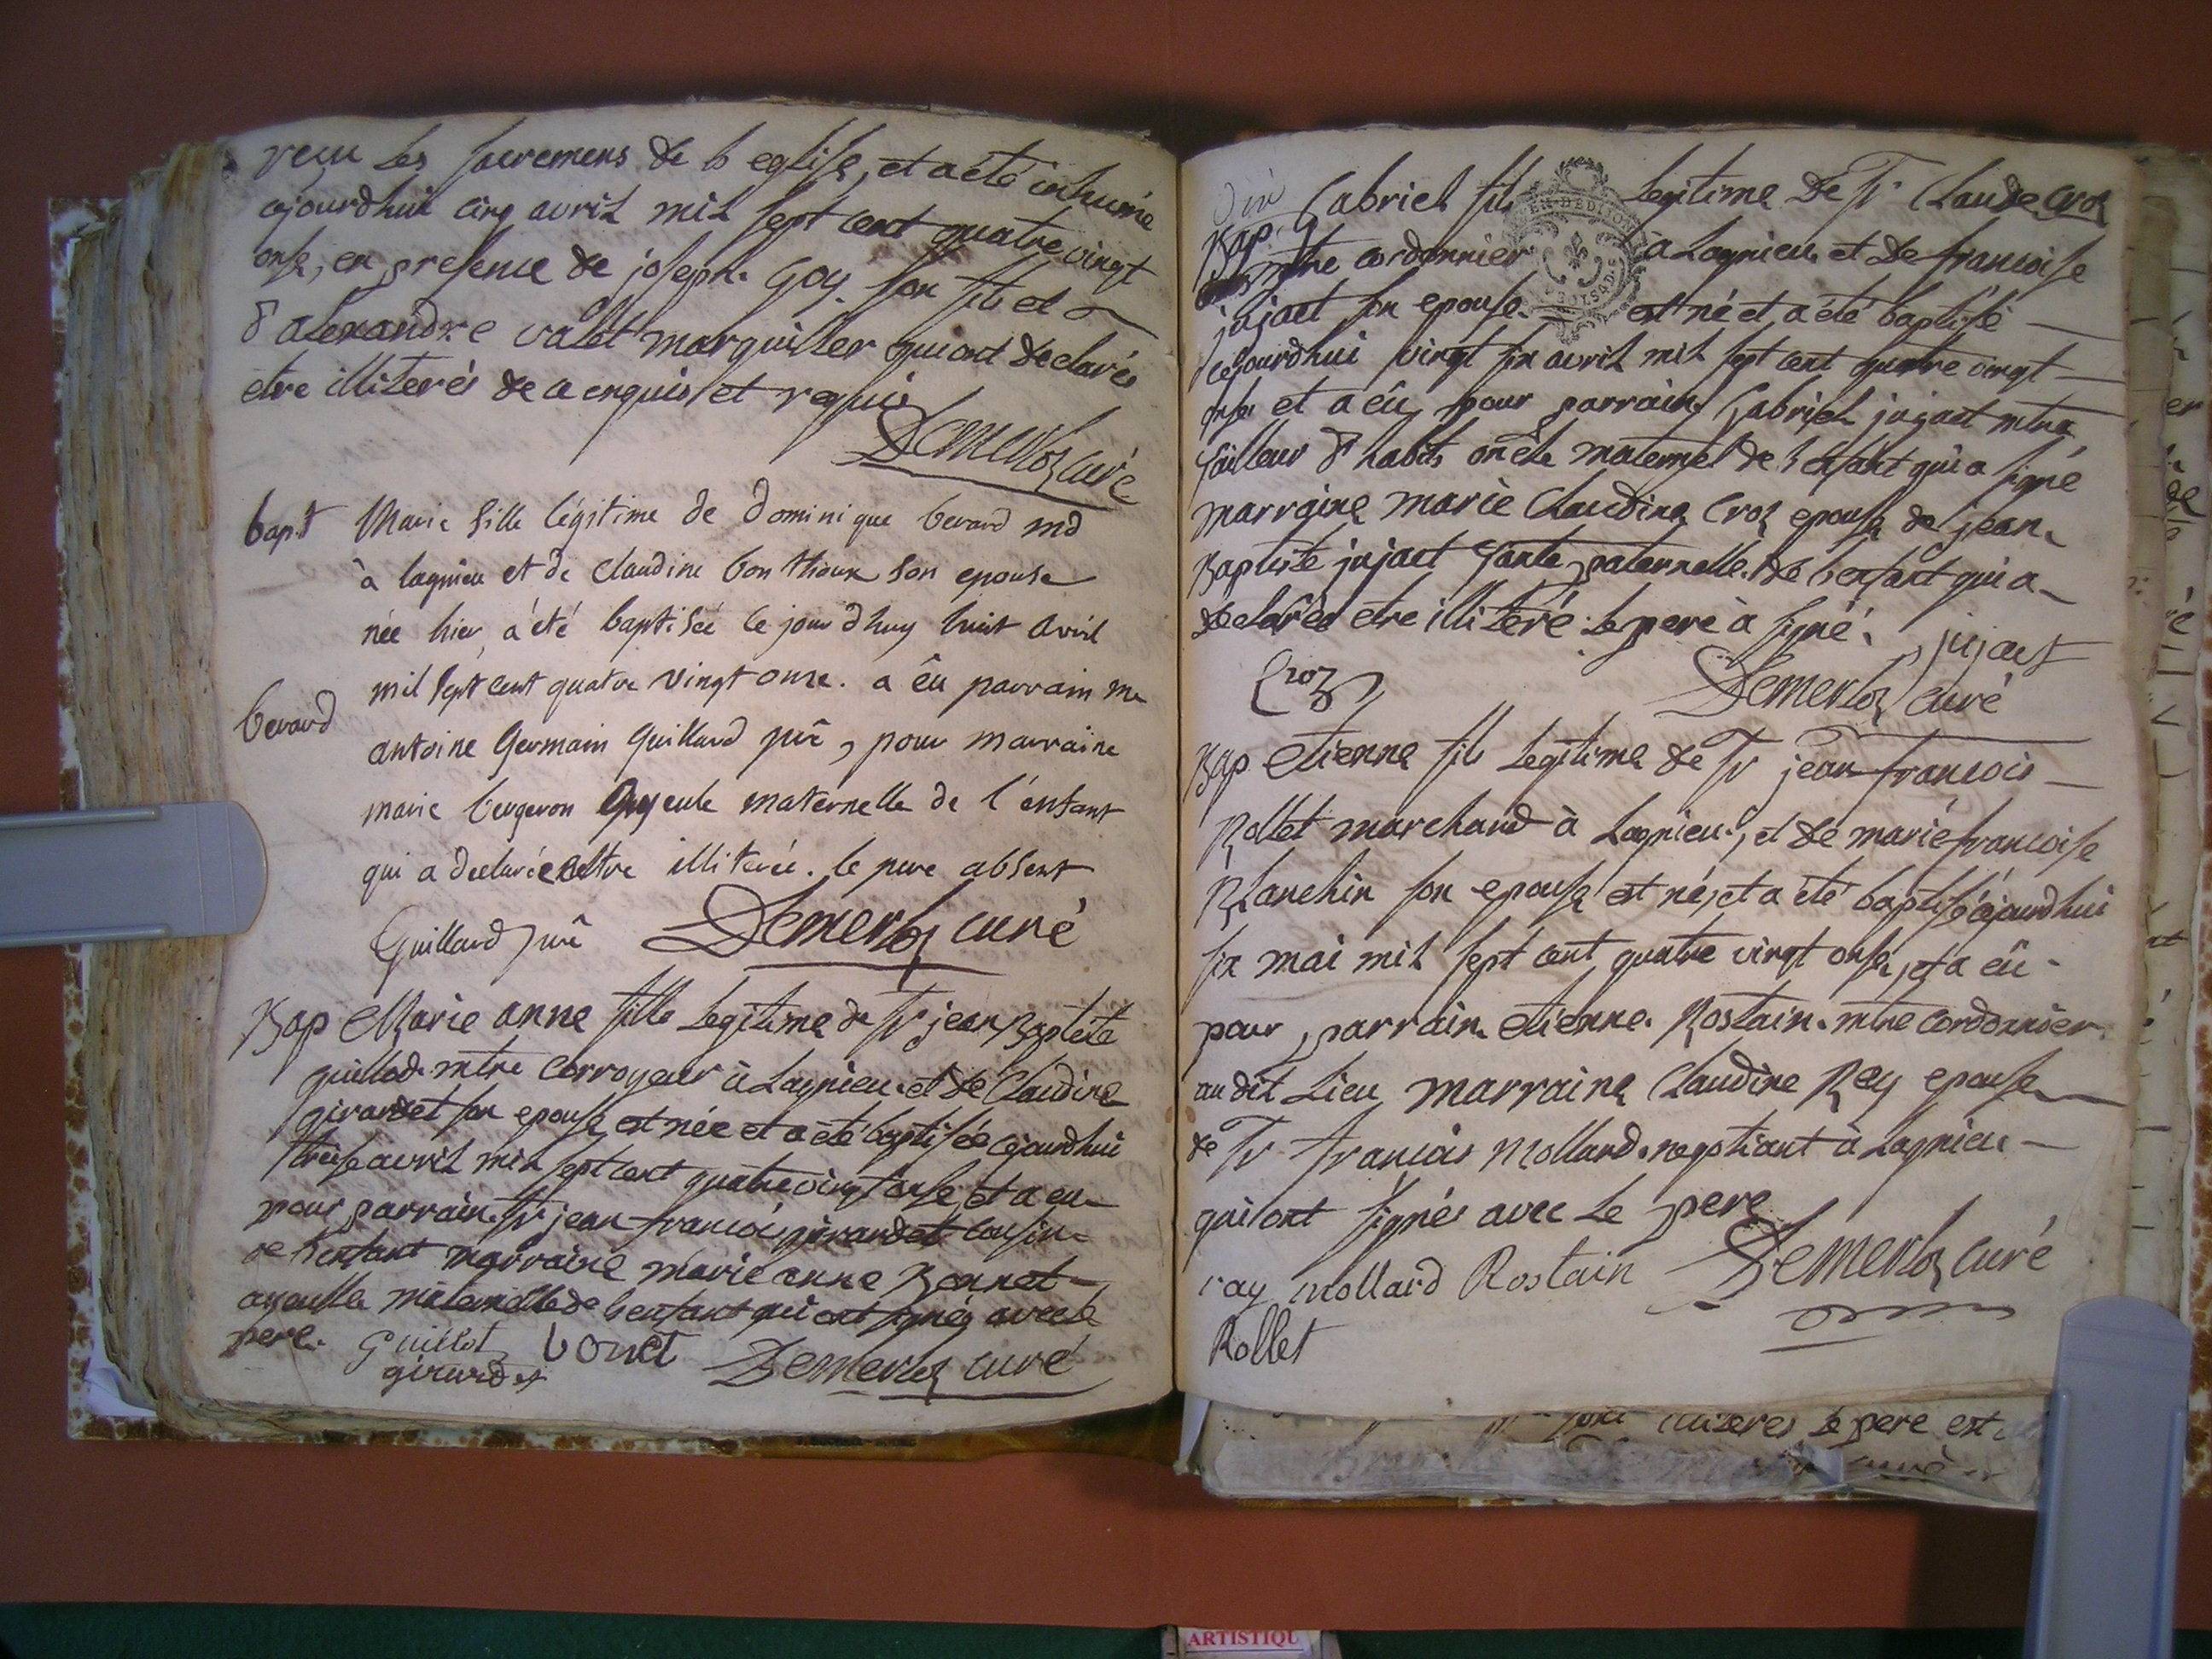 reçu les sacremens de l eglise, et a été inhumé
cejourdhui cinq avril mil sept cent quatre vingt
onse, en presence de joseph Goy son fils et
d alexandre valet marguiller qui ont declarés
etre illiterés de ce enquis et requis
Demerloz curé
bapt Marie fille légitime de dominique berard md
à lagnieu et de claudine bonthoux son epouse
née hier, a été baptisée ce jour d'huy huit avril
mil sept cent quatre vingt onze. a êu parrain me
berard
antoine Germain Guillard prê, pour marraine
marie bergeron ayeule maternelle de l'enfant
qui a declarée estre illiterée. le pere absent
Guillard prê Demerloz curé
Bap Marie anne fille legitime de Sr jean Baptiste
guillod mtre corroyeur à Lagnieu et de Claudine
girardet son epouse est née et a été baptisée cejourdhui
treise avril mil sept cent quatre vingt onse, et a eu
pour parrain Sr jean francois girardet cousin
de l'enfant marraine marie anne Bonnet
ayeulle maternelle de l'enfant qui ont signés avec le
pere. Guillot bonet Demerloz curé
girardet
Bap. Gabriel fils legitime de Sr Claude Croz
mtre cordonnier à Lagnieu et de francoise
jujact son epouse est né et a été baptisé
cejourdhui vingt six avril mil sept cent quatre vingt
onse et a eû pour parrain Gabriel jujact mtre
tailleur d'habits oncle maternel de l'enfant qui a signé
marraine marie Claudine Croz epouse de jean
Baptiste jujact tante paternelle de l'enfant qui a
declarée etre illiteré. le pere à signé. jujact
Croz Demerloz curé
Bap etienne fils legitime de Sr jean francois
Rollet marchand à Lagnieu, et de marie francoise
Blanchin son epouse est né, et a été baptisé cejourdhui
six mai mil sept cent quatre vingt onse, et a eû
pour parrain etienne Rostain mtre cordonnier
au dit Lieu marraine Claudine Rey epouse
de Sr francois Mollard negotiant à Lagnieu
qui ont signés avec le pere
ray mollard Rostain Demerloz curé
Rollet
illiteres le pere est
ARTISTIQU